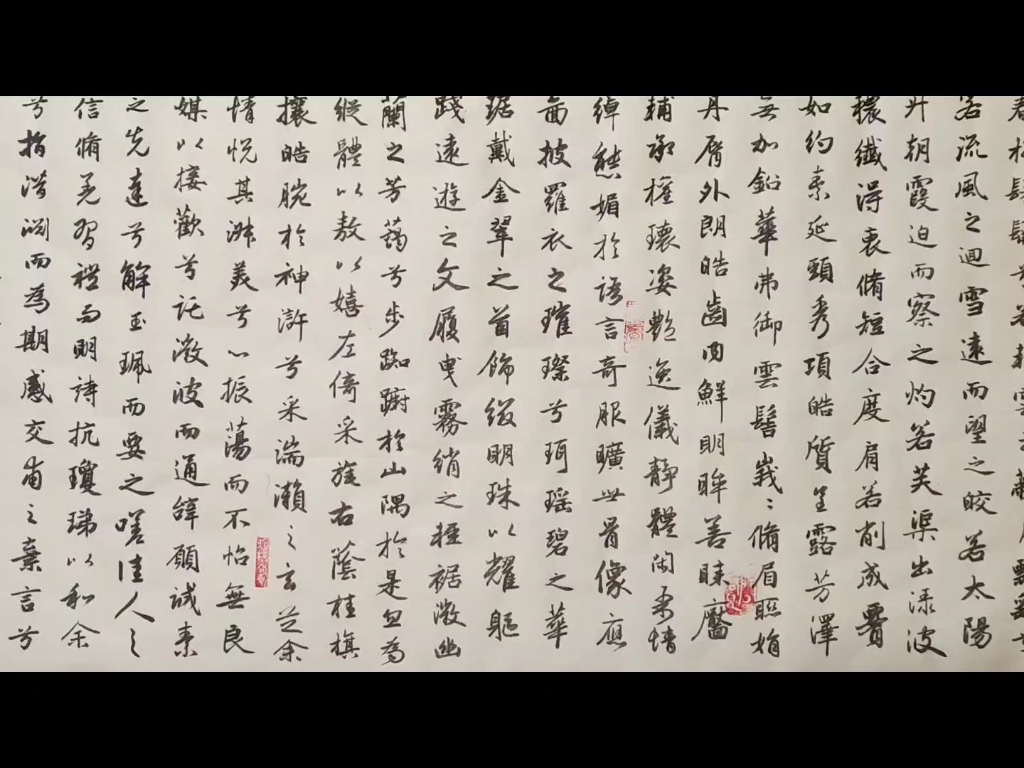 春松髣髴兮若輕雲之蔽月飄颻兮
若流風之迴雪遠而望之皎若太陽
升朝霞迫而察之灼若芙渠出淥波
穠纖得衷脩短合度肩若削成腰
如約素延頸秀項皓質呈露芳澤
無加鉛華弗御雲髻峩〻脩眉聯娟
丹脣外朗皓齒內鮮明眸善睞靨
輔承權瓌姿艷逸儀靜體閑柔情
綽態媚於語言奇服曠世骨像應
啚披羅衣之璀璨兮珥瑤碧之華
琚戴金翠之首飾綴明珠以耀軀
踐遠遊之文履曳霧綃之輕裾微幽
蘭之芳藹兮步踟躕於山隅於是忽焉
縱體以敖以嬉左倚采旄右蔭桂旗
攘皓腕於神滸兮采湍瀨之玄芝余
情悅其淑美兮心振蕩而不怡無良
媒以接歡兮託微波而通辭願誠素
之先達兮解玉珮而要之嗟佳人之
信脩羌習禮而明詩抗瓊珶以和余
兮指潛淵而為期感交甫之棄言兮